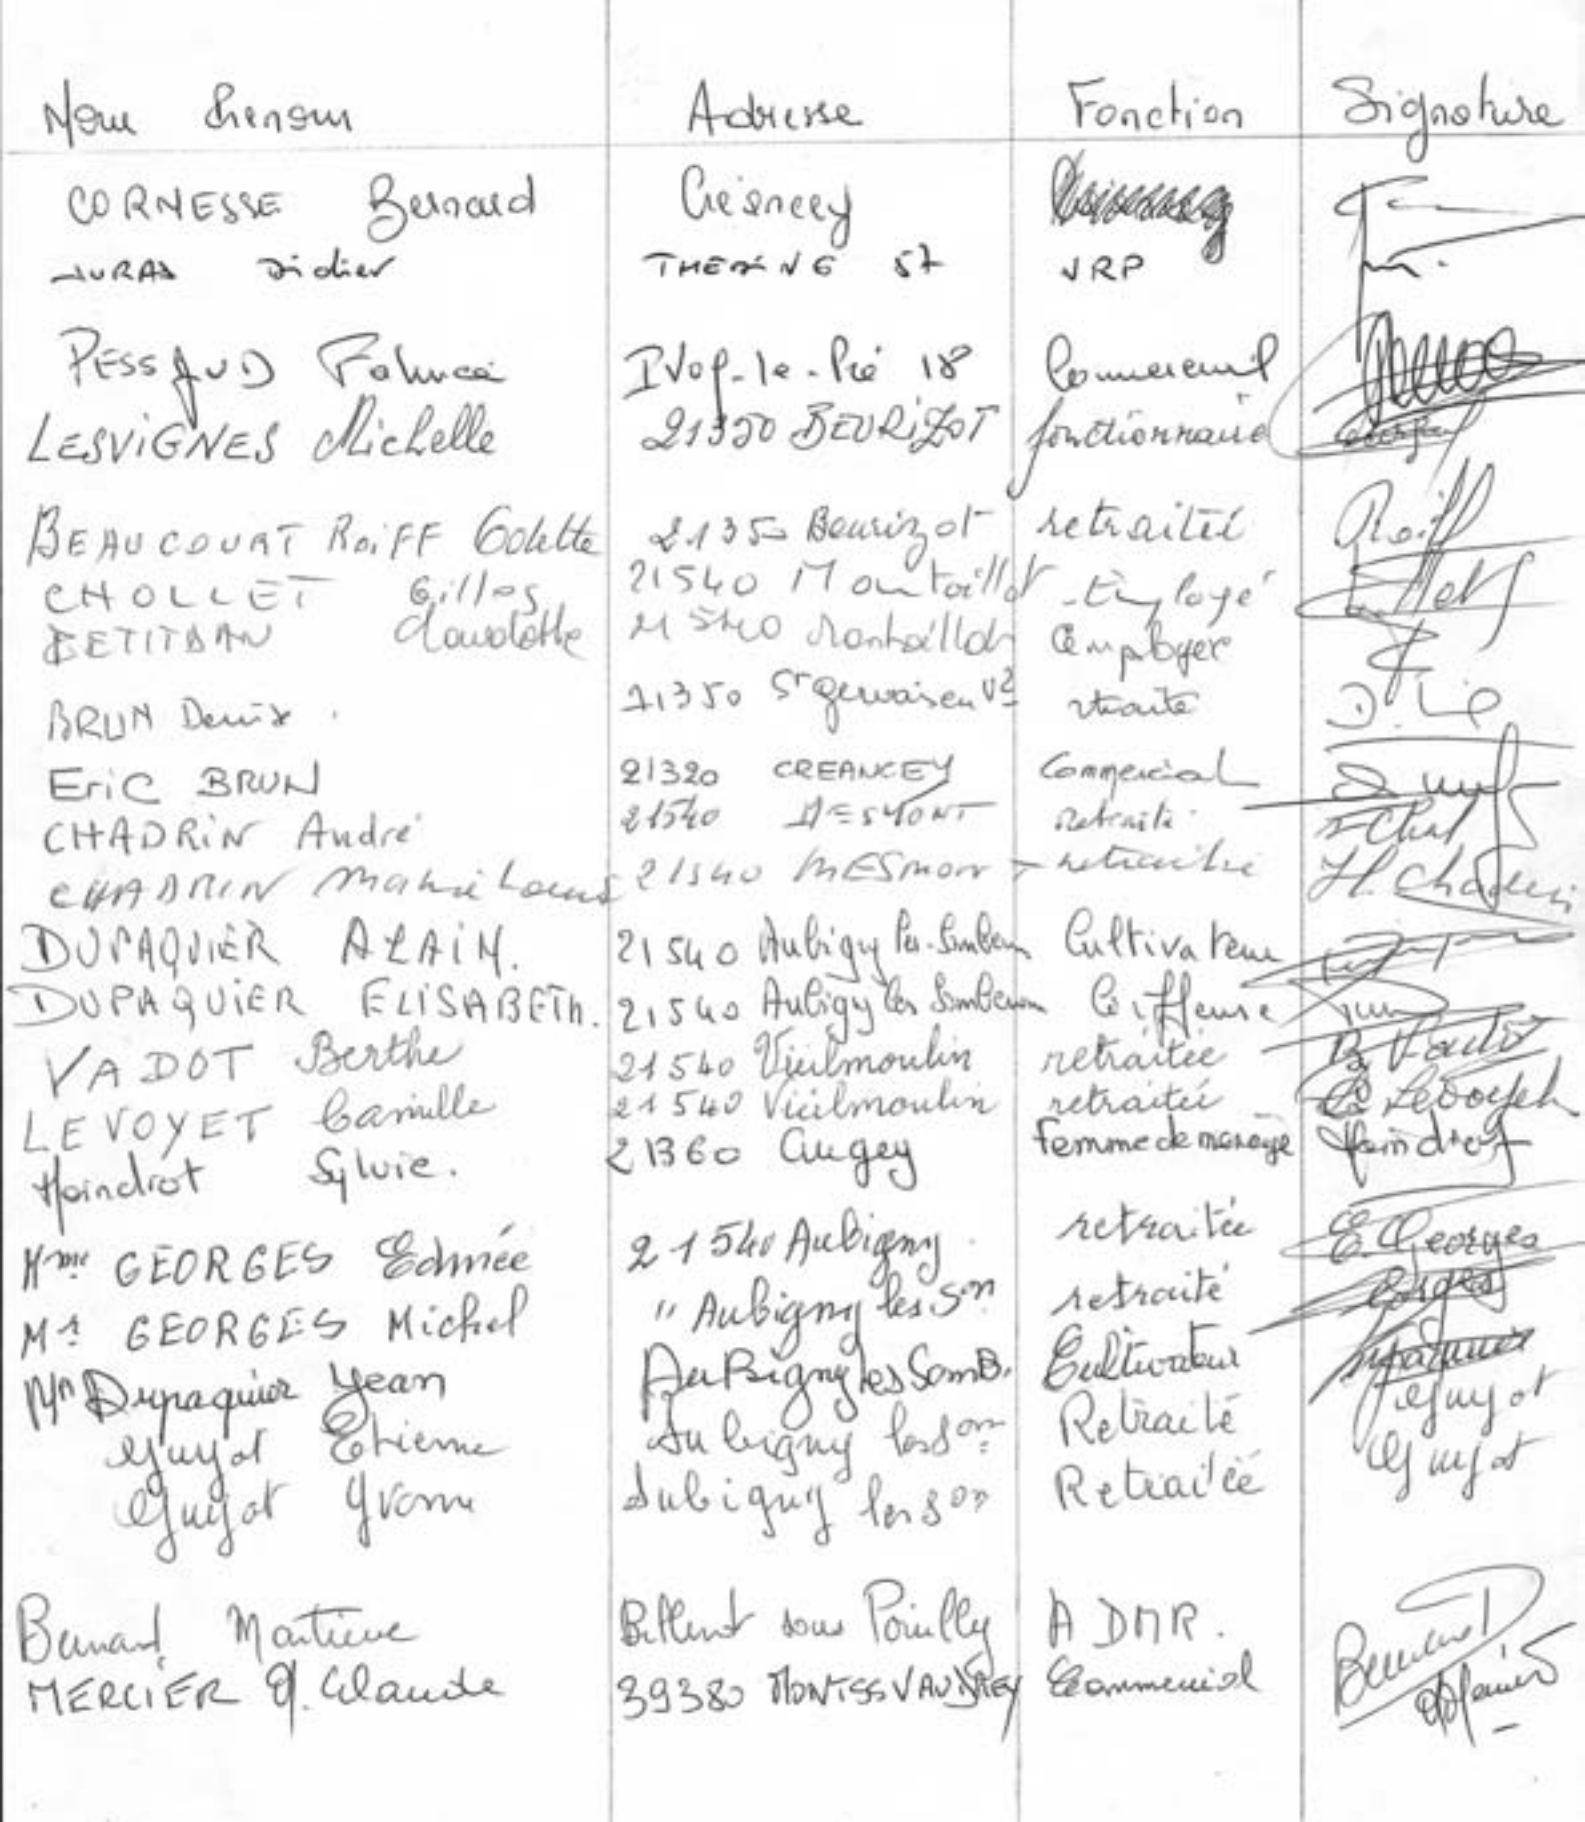 Nom Prénom Adresse Fonction Signature
CORNESSE Bernard Créancey
JURAS Didier 57 VRP
PESSAUD Fabrice Ivoy-le-Pré 18 Commercial
LESVIGNES Michelle 21350 BEURIZOT fonctionnaire
BEAUCOURT Roiff Colette 21350 Beurizot retraitée Roiff
CHOLLET Gilles 21540 Montoillot Employé
Claudette 21540 Montoillot employer
BRUN Denise 21350 St Gervais en Vx retraite
Eric BRUN 21320 CREANCEY Commercial
CHADRIN André 21540 MESMONT Retraité
CHADRIN Marie Louise 21540 MESMONT retraitée
DUPAQUIER ALAIN. 21540 Aubigny les Sombern Cultivateur
DUPAQUIER ELISABETH. 21540 Aubigny les Sombernon Coiffeuse
VADOT Berthe 21540 Vieilmoulin retraitée B Vadot
LEVOYET Camille 21540 Vieilmoulin retraitée C Levoyet
Hoindrot Sylvie. 21360 Cugey Femme de menage Hoindrot
Mme GEORGES Edmée 21540 Aubigny retraitée E. Georges
Mr GEORGES Michel " Aubigny les Son retraité Georges
Mr Dupaquier Jean Aubigny les SomB. Cultivateur
Guyot Etienne Aubigny les Son Retraité Guyot
Guyot Yvonne Aubigny les Son Retraitée Guyot
Bernard Martine sous Pouilly ADMR. Bernard
MERCIER J. Claude 39380 MONTSSVAUDREY Commercial